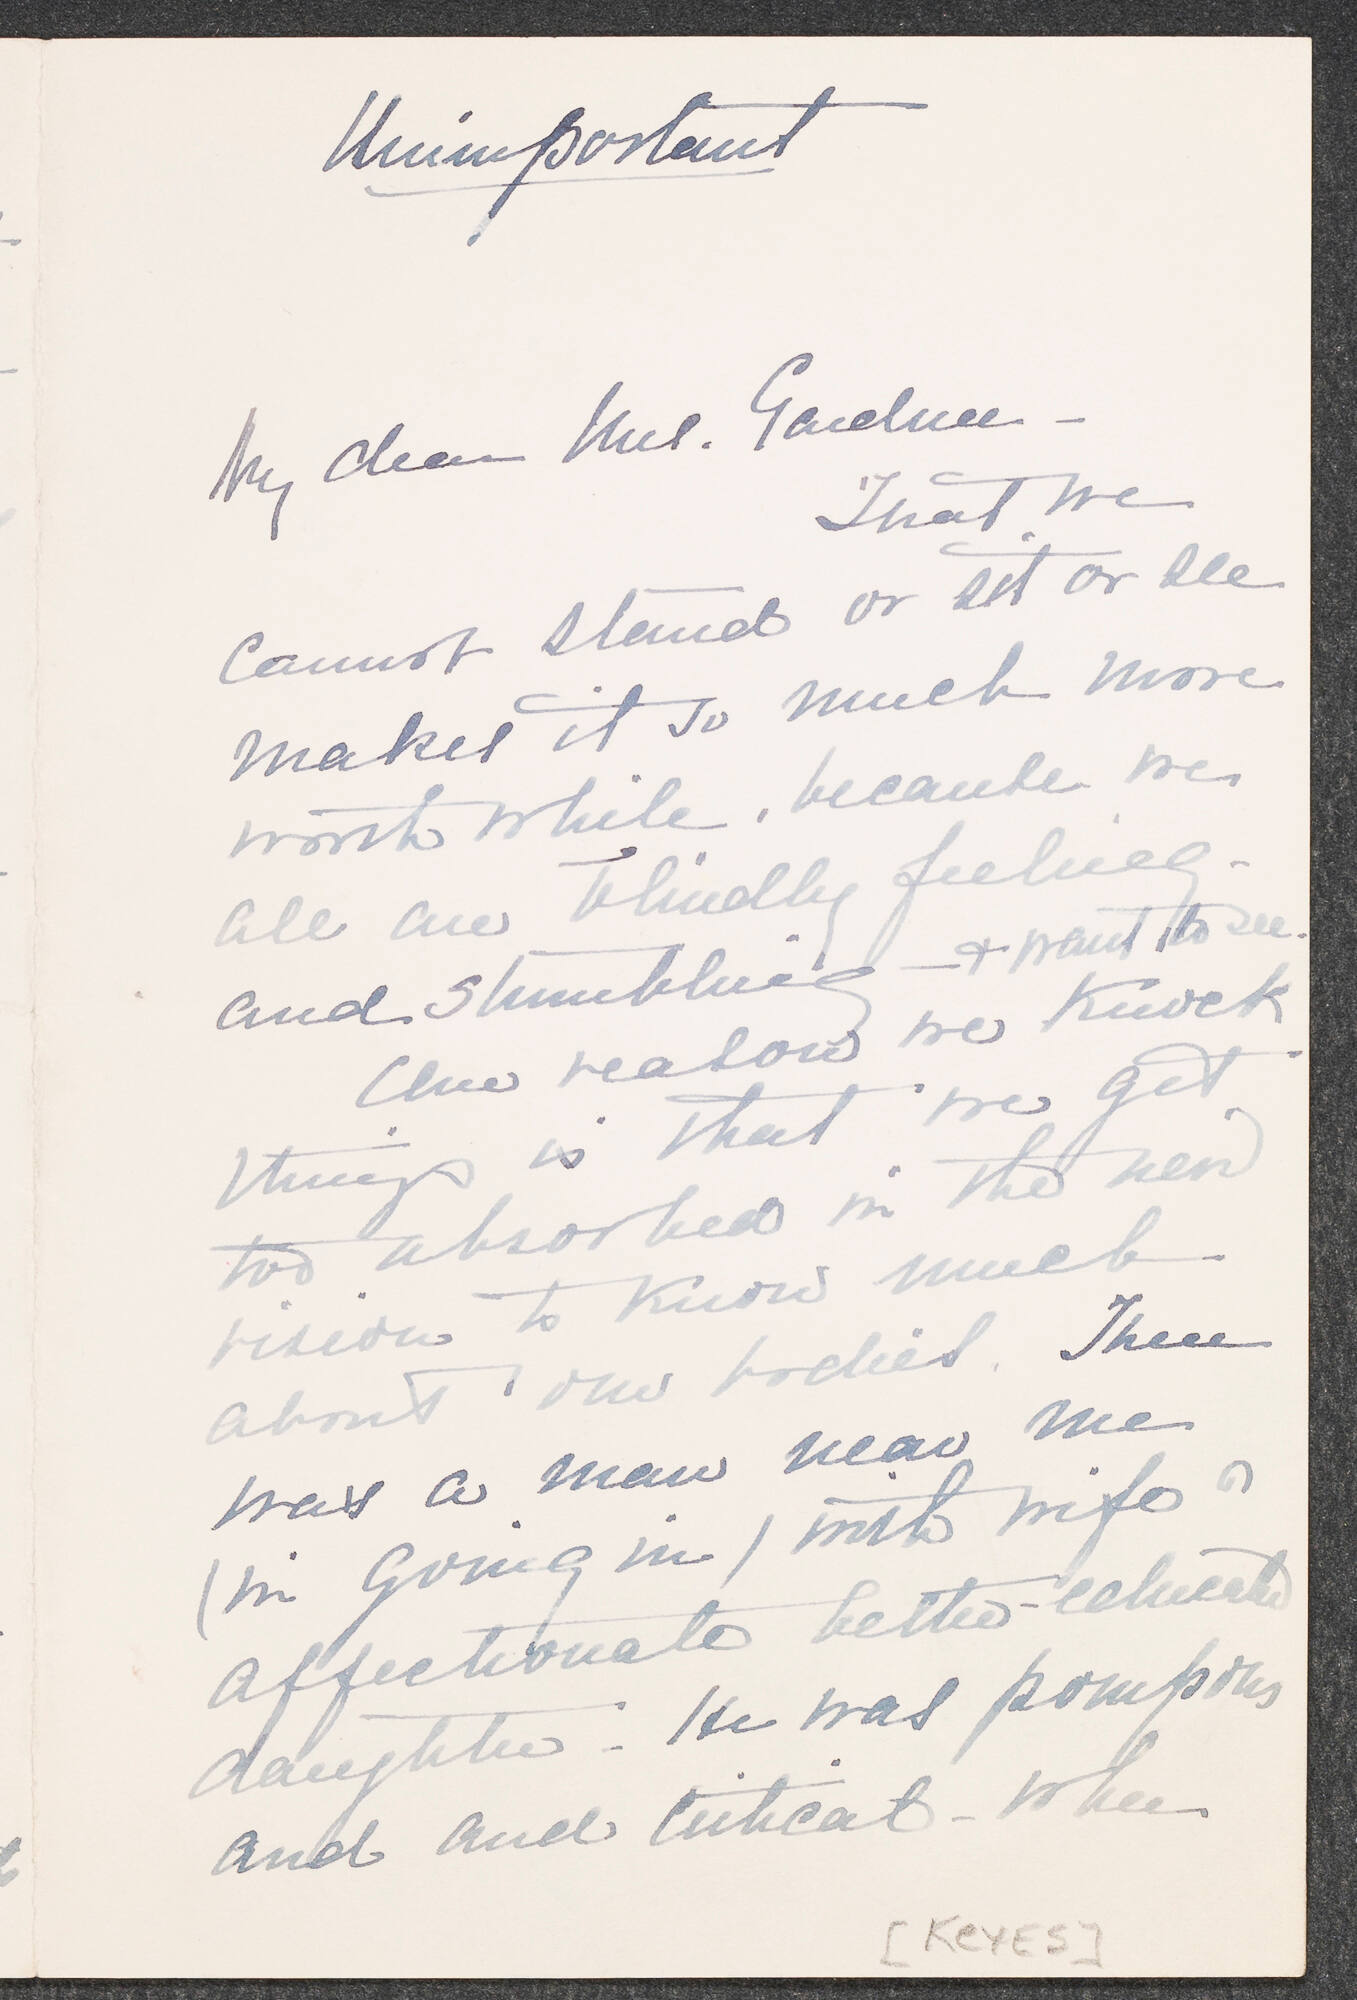 Unimportant
My dear Mrs. Gardner -
That we
cannot stand or sit or see
makes it so much more
worth while, because we
all are blindly feeling -
and stumbling - + want to see.
One reason we knock
things is that we get
too absorbed in the new
vision to know much
about our bodies. There
was a man near me
(in going in) with wife &
affectionate better-educated
daughter - He was pompous
and and critical - when
[KEYES]